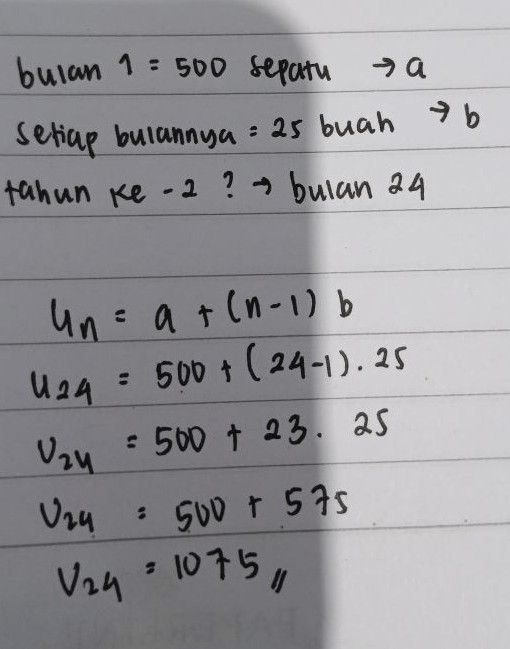 bulan 1 = 500 sepatu → a
setiap bulannya = 25 buah → b
tahun ke -2 ? → bulan 24
Un = a + (n-1) b
U24 = 500 + (24-1) . 25
U24 = 500 + 23 . 25
U24 = 500 + 575
U24 = 1075 //